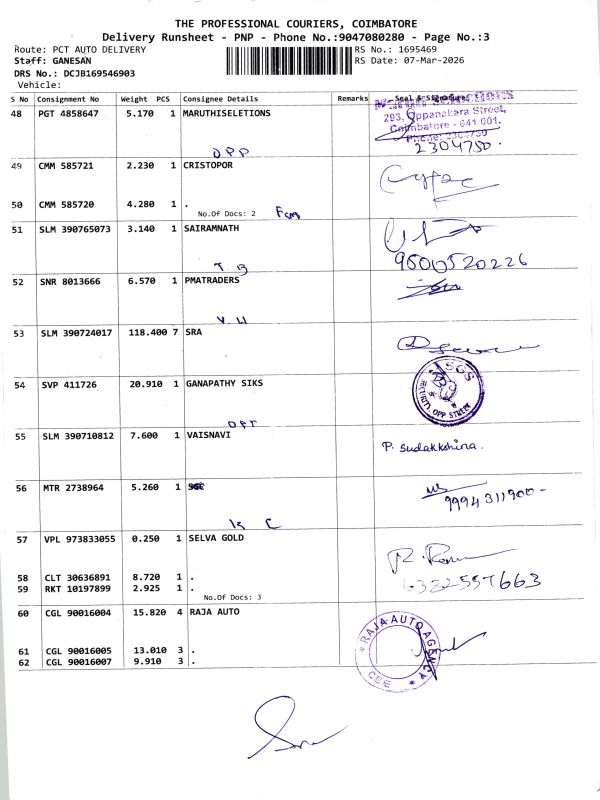 THE PROFESSIONAL COURIERS, COIMBATORE
Delivery Runsheet - PNP - Phone No.:9047080280 - Page No.:3
Route: PCT AUTO DELIVERY RS No.: 1695469
Staff: GANESAN RS Date: 07-Mar-2026
DRS No.: DCJB169546903
Vehicle:
S No Consignment No Weight PCS Consignee Details Remarks Seal & Signature
48 PGT 4858647 5.170 1 MARUTHISELETIONS
293, Oppanakara Street,
Coimbatore - 641 001.
Phone: 2304750
2304750.
OPP
49 CMM 585721 2.230 1 CRISTOPOR
50 CMM 585720 4.280 1 .
No.Of Docs: 2
51 SLM 390765073 3.140 1 SAIRAMNATH
T B
9500520226
52 SNR 8013666 6.570 1 PMATRADERS
V H
53 SLM 390724017 118.400 7 SRA
54 SVP 411726 20.910 1 GANAPATHY SIKS
SGS
SECURITY, OPP STREET
OPP
55 SLM 390710812 7.600 1 VAISNAVI
P. Sudakkshina.
56 MTR 2738964 5.260 1
9994311900-
K C
57 VPL 973833055 0.250 1 SELVA GOLD
58 CLT 30636891 8.720 1 .
6382557663
59 RKT 10197899 2.925 1 .
No.Of Docs: 3
60 CGL 90016004 15.820 4 RAJA AUTO
RAJA AUTO AGENCY
CBE
61 CGL 90016005 13.010 3 .
62 CGL 90016007 9.910 3 .